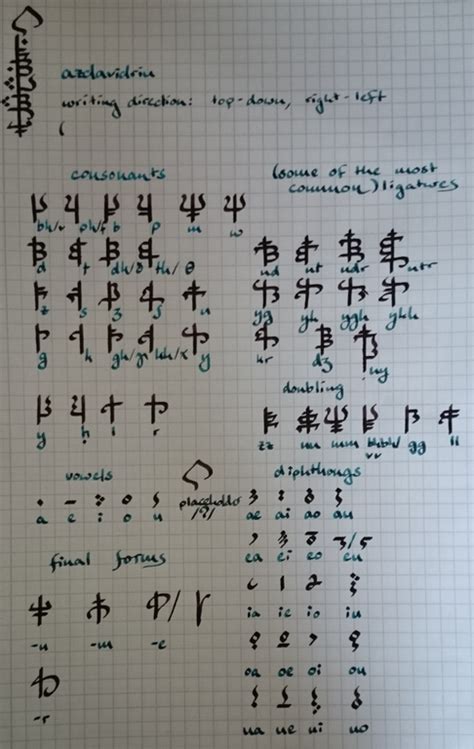 azdavidrin
writing direction: top-down, right-left
consonants
(some of the most common) ligatures
bh/v ph/f b p m w
d t dh/ð th/θ
nd nt ndr ntr
z s ʒ ʃ n
yg yh ygh ykh
g k gh/ɣ kh/x y
kr dʒ ny
doubling
y h l r
zz nn mm bhbh/vv gg ll
vowels
placeholder /ʔ/
diphthongs
a e i o u
ae ai ao au
ea ei eo eu
final forms
ia ie io iu
-n -m -e
oa oe oi ou
-r
ua ue ui uo